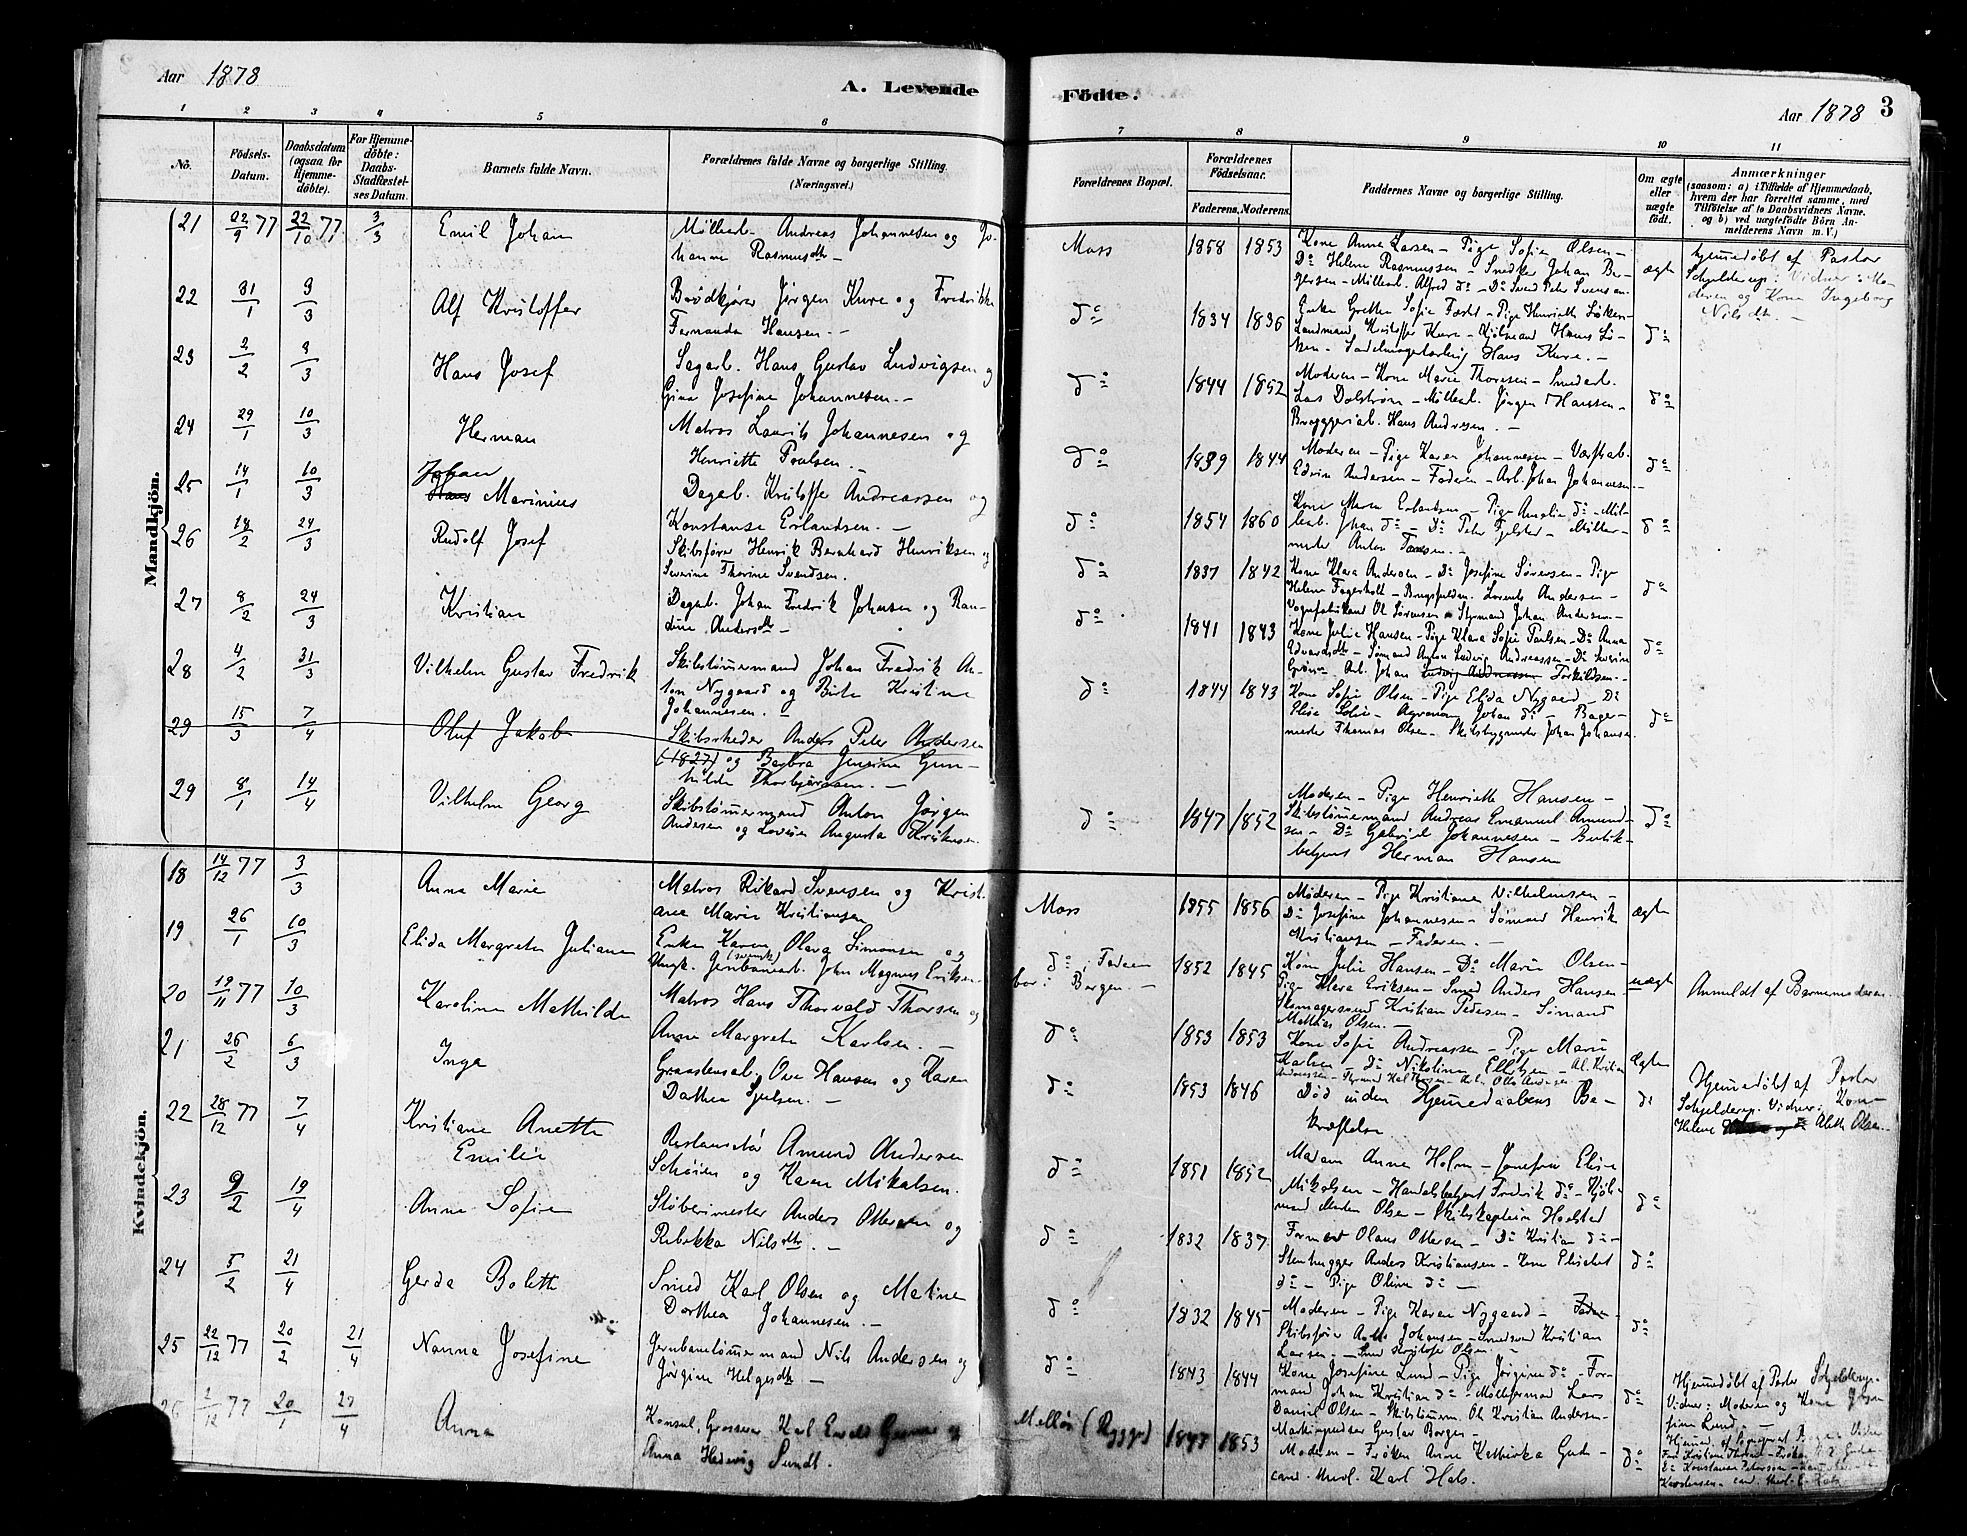 Aar 1878
A. Levende
Födte.
Aar 1878 3
1 2 3 4 5 6
7 8 9 10 11
No. Födsels-Datum. Daabsdatum (ogsaa for Hjemmedöbte). For Hjemmedöbte: Daabs-Stadfæstelses Datum. Barnets fulde Navn. Forældrenes fulde Navne og borgerlige Stilling. (Næringsvei.)
Forældrenes Bopæl. Forældrenes Födselsaar. Faderens. Moderens. Faddernes Navne og borgerlige Stilling. Om ægte eller uægte födt. Anmærkninger (saasom: a) i Tilfælde af Hjemmedaab, hvem der har forrettet samme, med Tilföielse af to Daabsvidners Navne. og b) ved uægtefödte Börn Anmelderens Navn m. V.)
Mandkjön.
21 22/9 77 22/10 77 3/3 Emil Johan Möllearb. Andreas Johannesen og Jo-
hanne Rasmusdtr. —
Moss 1858 1853 Kone Anna Larsen — Pige Sofie Olsen —
Do Helene Rasmussen — Snedker Johan Ber-
gersen — Möllearb. Alfred do — Do Svend Peter Svensen
ægte
Hjemmedöbt af Pastor
Schjelderup. Vidner: Mo-
deren og Kone Ingeborg
Nilsdtr. —
22 31/1 3/3 Alf Kristoffer Brödkjörer Jörgen Kure og Fredrikke
Fernanda Hansen. —
do 1834 1836 Enke Grethe Sofie — Pige Henriette Löken —
Landmand Kristoffer Kure — Kjöbmand Hans Lö-
ken — Sadelmagerlærling Hans Kure. —
do
23 2/2 3/3 Hans Josef Sagarb. Hans Gustav Ludvigsen og
Gina Josefine Johannesen. —
do 1844 1852 Moderen — Kone Marie Thoresen — Smedarb.
Lars Dolström — Möllearb. Jörgen Hansen —
Bryggeriarb. Hans Andresen. —
do
24 29/1 10/3 Herman Matros Laurits Johannesen og
Henriette Poulsen. —
do 1839 1844 Moderen — Pige Karen Johannesen — Værftsarb.
Edvin Andersen — Faderen — Arb. Johan Johannesen. —
do
25 14/1 10/3 Johan
Hans Marinius Dagarb. Kristoffer Andreassen og
Konstanse Erlandsen. —
do 1854 1860 Kone Maren Erlandsen — Pige Amalie do — Möl-
learb. Johan do — Do Peter Fjelster — Möller-
mester Anton
do
26 14/2 24/3 Rudolf Josef Skibsförer Henrik Bernhard Henriksen og
Severine Thorine Svendsen.
do 1837 1842 Kone Klara Andersen — Do Josefine Sörensen — Pige
Helene Fagerholt — Brugsfuldm. Lorents Andersen —
Vognfabrikant Ol. Sörensen — Styrmand Johan Andersen —
do
27 8/2 24/3 Kristian Dagarb. Johan Fredrik Johansen og Ran-
dine Andersdtr —
do 1841 1843 Kone Julie Hansen — Pige Klara Sofie Paulsen — Do Anna
Edvardsdtr — Sömand Anton Ludvig Andreassen — Do Severin
Grönn — Arb. Johan Ludvig Andreassen Torkildsen —
do
28 4/2 31/3 Vilhelm Gustav Fredrik Skibstömmermand Johan Fredrik An-
ton Nygaard og Birte Kristine
Johannesen. —
do 1844 1843 Kone Sofie Olsen — Pige Elida Nygaard — Do
Elise Sofie — Agronom Johan do — Bager-
mester Thomas Olsen — Skibsbygmester Johan Johansen.
do
29 15/3 7/4 Oluf Jakob Skibsrheder Anders Peter Andersen
(1827) og Barbra Jensine Gun-
hilde Thorbjörnsen. —
29 8/1 14/4 Vilhelm Georg Skibstömmermand Anton Jörgen
Andersen og Lovise Augusta Kristensen.
do 1847 1852 Moderen — Pige Henriette Hansen —
Skibstömmermand Andreas Emanuel Amund-
sen — Do Gabriel Johannesen — Butik-
betjent Herman Hansen
do
Kvindekjön.
18 14/12 77 3/3 Anna Marie Matros Rikard Svensen og Krist-
ane Marie Kristiansen
Moss 1855 1856 Moderen — Pige Kristiane Vilhelmsen —
Do Josefine Johannesen — Sömand Henrik
Kristiansen — Faderen. —
ægte
19 26/1 10/3 Elida Margrethe Juliane Enken Karen Olava Simonsen og
Ungk. Jernbanearb. (svensk) John Magnus Eriksen.
do; Faderen
bor i Bergen. — 1852 1845 Kone Julie Hansen — Do Marie Olsen —
Pige Klara Eriksen — Smed Anders Hansen
Skomagersvend Kristian Pedersen — Sömand
Mathias Olsen. —
uægte Anmeldt af Barnemoderen.
20 19/11 77 10/3 Karoline Mathilde Matros Hans Thorvald Thorsen og
Anne Margrete Karlsen. —
do 1853 1853 Kone Sofie Andreassen — Pige Marie
Karlsen — Do Nikoline Ellefsen — Al. Kristian
Andreassen —
Ægte
21 26/2 6/3 Inga Graastensarb. Ove Hansen og Karen
Dorthea Sjulsen. —
do 1853 1846 Död inden Hjemmedaabens Be-
kræftelse
do
Hjemmedöbt af Pastor
Schjelderup. Vidner: Kone
Helene og Aleth Olsen.
22 28/12 77 7/4 Kristiane Anette
Emilie Restauratör Amund Andersen
Schöien og Karen Mikalsen.
do 1851 1852 Madam Anne Holm — Jomfru Elise
Mikalsen — Handelsbetjent Fredrik do — Kjöb-
mand Olsen — Skibskaptein Holsted
do
23 9/2 19/4 Anna Sofie Stöberimester Anders Ottersen og
Rebekka Nilsdtr. —
do 1832 1837 Formand Olaus Ottersen — Do Kristian do —
Stenhugger Anders Kristiansen — Kone Elisabet
do — Pige Oline do —
do
24 5/2 21/4 Gerda Bolette Smed Karl Olsen og Matine
Dorthea Johannesen. —
do 1832 1845 Moderen — Pige Karen Nygaard —
Skibsförer Johansen — Smedsvend Kristian
Larsen. — Smed Kristoffer Olsen. —
do
25 22/12 77 20/2 21/4 Nanna Josefine Jernbanetömmermand Nils Andersen og
Jörgine Helgesdtr —
do 1843 1844 Kone Josefine Lund — Pige Jörgine do — For-
mand Johan Kristian do — Mölleformand Lars
Daniel Olsen — Skibstömm. Ole Kristian Andersen —
Gustav Borgen —
do
Hjemmedöbt af Pastor Schjelderup.
Vidner: Moderen og Kone
Lund. —
26 2/12 77 20/1 27/4 Anna Konsul, Grosserer Karl og
Anna Hedevig Sundt.
Mellös (Rygge) 1847 1853 Moderen — Fröken Anne Kathinka Gude —
cand. med. Karl Hals.
do